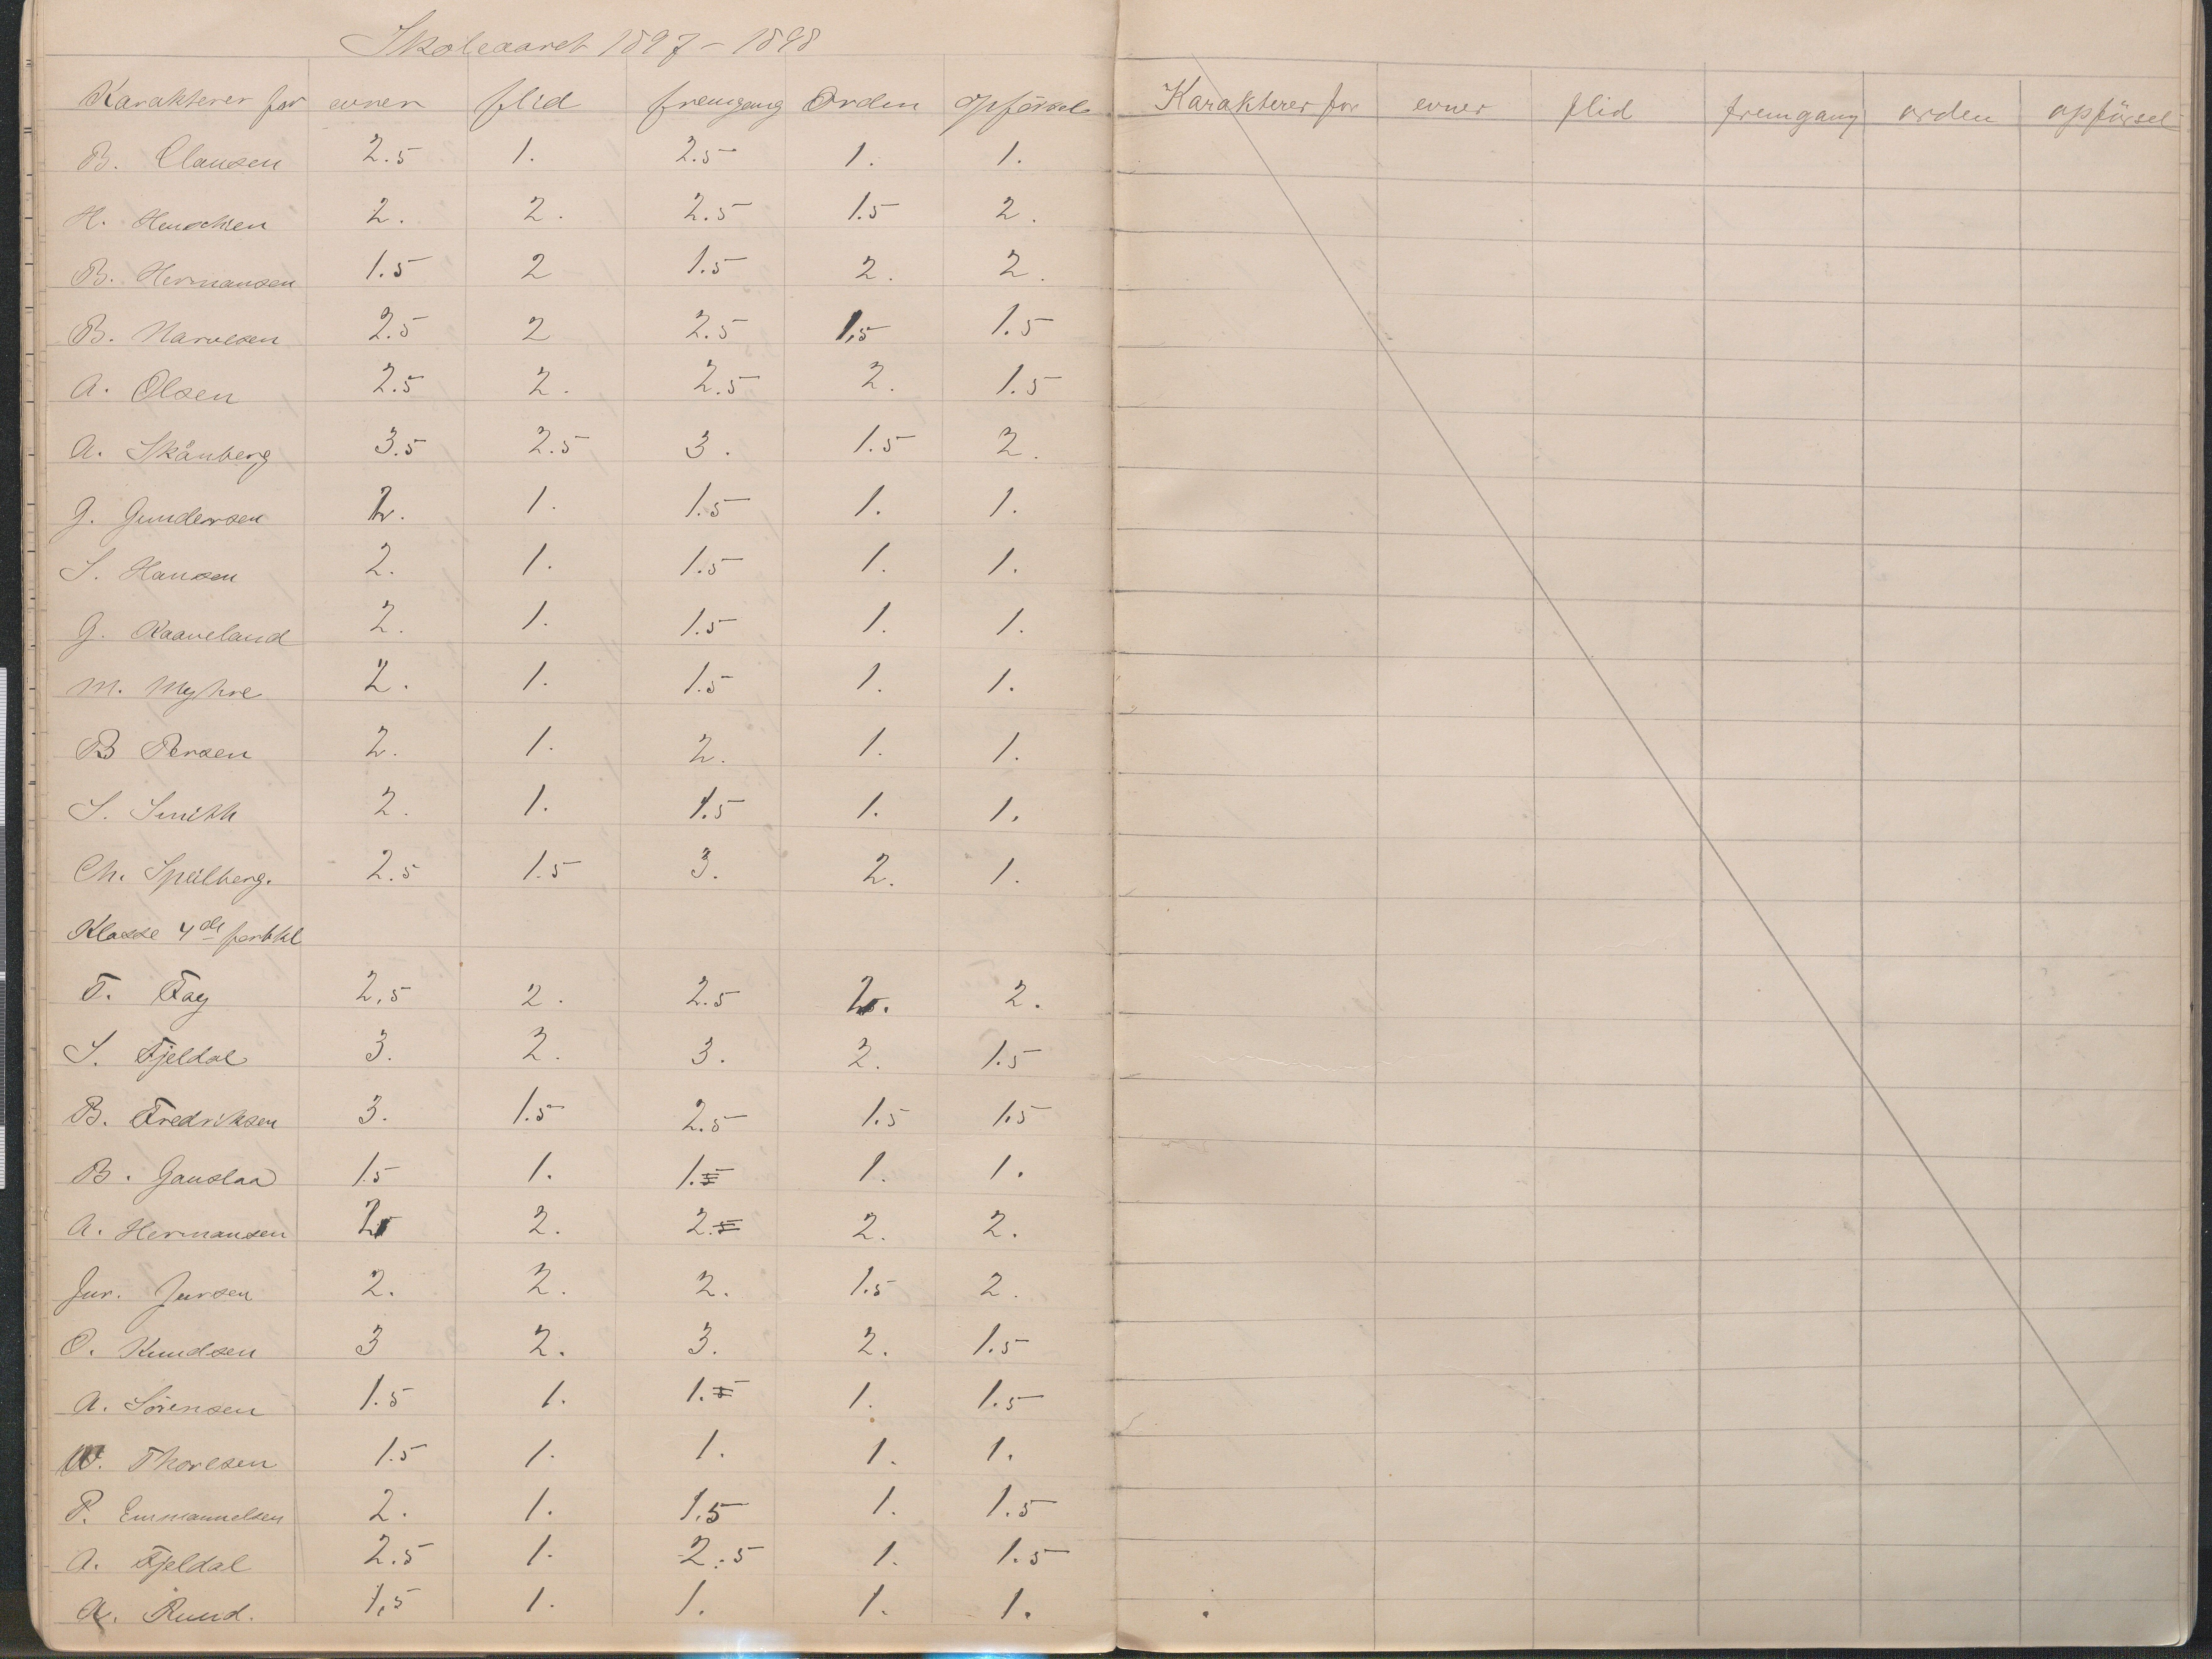 Skoleaaret 1897-1898
Karakterer for evner flid fremgang Orden opförsel
B. Clausen 2.5 1. 2.5 1. 1.
H. 2. 2. 2.5 1.5 2.
B. Hermansen 1.5 2 1.5 2. 2.
B. Narvesen 2.5 2 2.5 1,5 1.5
A. Olsen 2.5 2. 2.5 2. 1.5
A. Skånberg 3.5 2.5 3. 1.5 2.
G. Gundersen 2. 1. 1.5 1. 1.
S. Hansen 2. 1. 1.5 1. 1.
G. Kaaveland 2. 1. 1.5 1. 1.
M. Myhre 2. 1. 1.5 1. 1.
B Persen 2. 1. 2. 1. 1.
S. Smith 2. 1. 1.5 1. 1.
Ch. Speilberg. 2.5 1.5 3. 2. 1.
Klasse 4de
T. Fay 2,5 2. 2.5 2. 2.
S. Fjeldal 3. 2. 3. 2. 1.5
B. Fredriksen 3. 1.5 2.5 1.5 1.5
B. Gauslaa 1.5 1. 1.5 1. 1.
A. Hermansen 2 2. 2.5 2. 2.
Jur. Jursen 2. 2. 2. 1.5 2.
O. Knudsen 3 2. 3. 2. 1.5
A. Sörensen 1.5 1. 1.5 1. 1.5
W. Thoresen 1.5 1. 1. 1. 1.
P. Emmanuelsen 2. 1. 1.5 1. 1.5
A. Fjeldal 2.5 1. 2.5 1. 1.5
A. Ruud. 1,5 1. 1. 1. 1.
Karakterer for evner flid fremgang orden opförsel